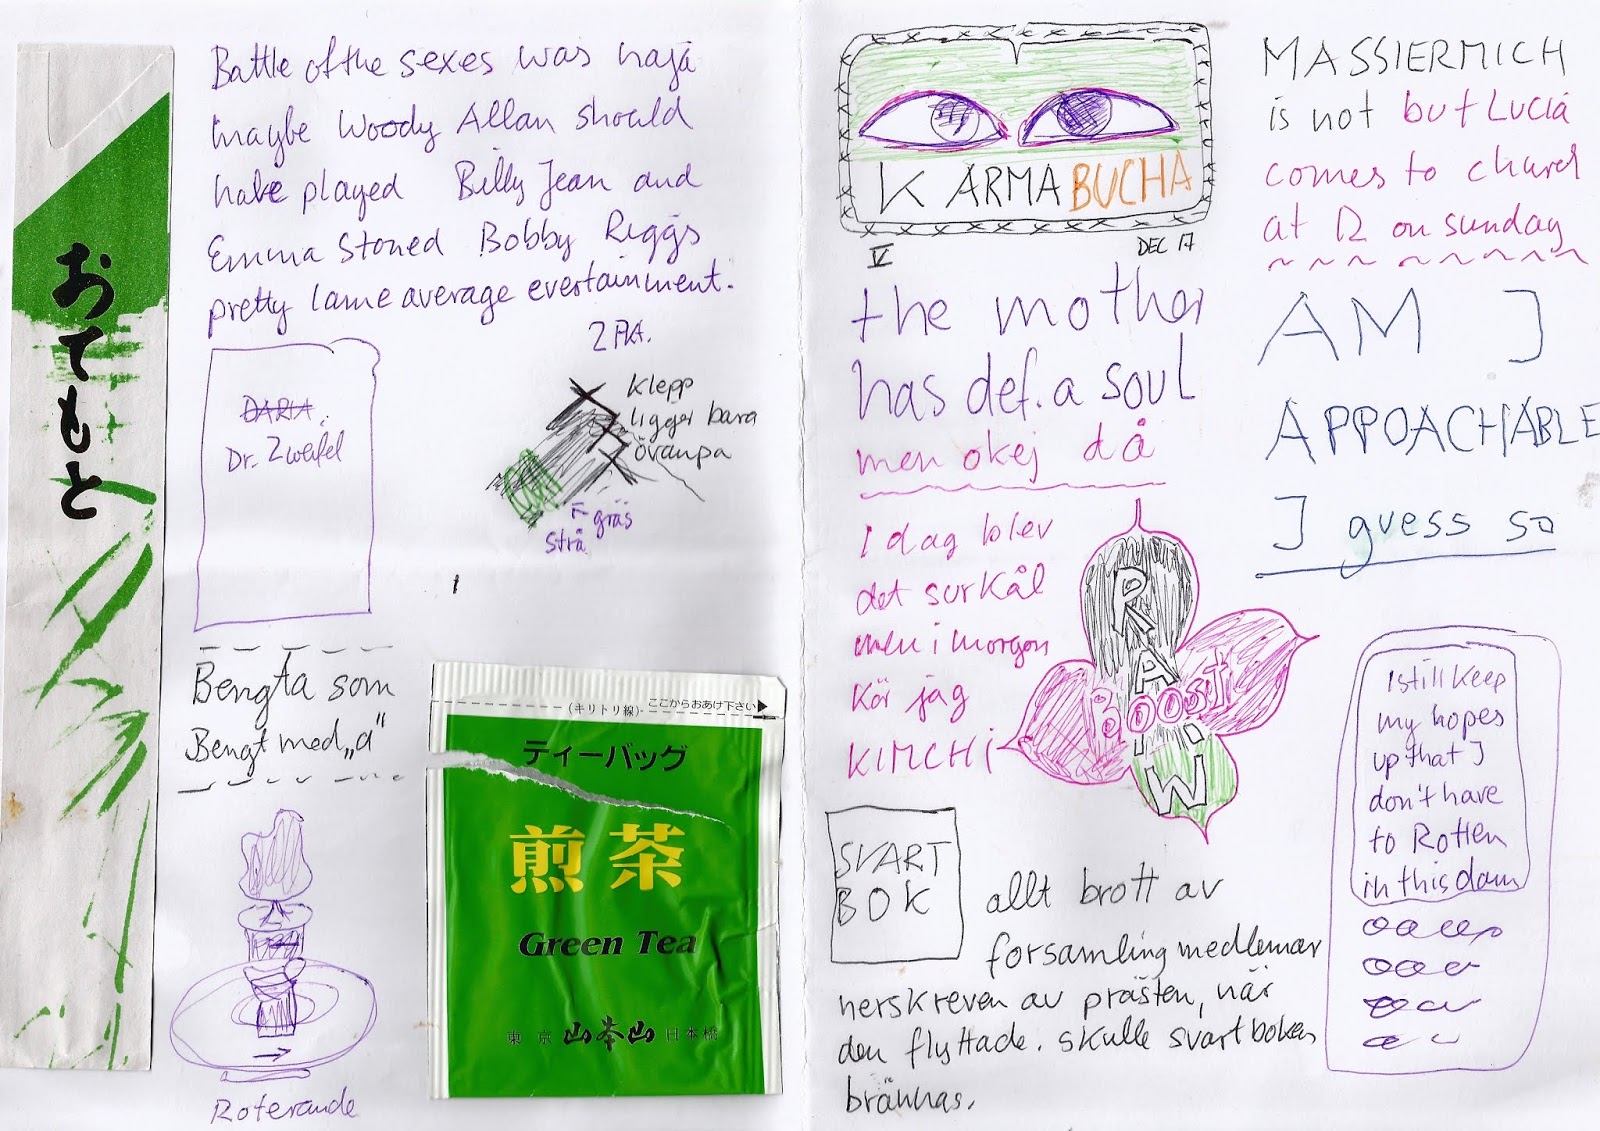 おてもと
Battle of the sexes was naja
maybe Woody Allan should
have played Billy Jean and
Emma Stoned Bobby Riggs
pretty lame average evertainment.
2 PKt.
DARIA.
Dr. Zweifel
klepp
ligger bara
ovanpå
gräs
strå
Bengta som
Bengt med „a"
Roterande
(キリトリ線)
ここからおあけ下さい▶
ティーバッグ
煎茶
Green Tea
東京 山本山 日本橋
KARMABUCHA
IV DEC 17
the mother
has def. a soul
men okej då
I dag blev
det surkål
men i morgon
kör jag
KIMCHI
RAW
Boost
SVART
BOK
allt brott av
forsamling medlemar
nerskreven av prästen, när
den flyttade. skulle svart boken
brännas.
MASSIERMICH
is not but Lucia
comes to church
at 12 on sunday
AM I
APPOACHABLE
I guess so
I still keep
my hopes
up that I
don't have
to Rotten
in this dam